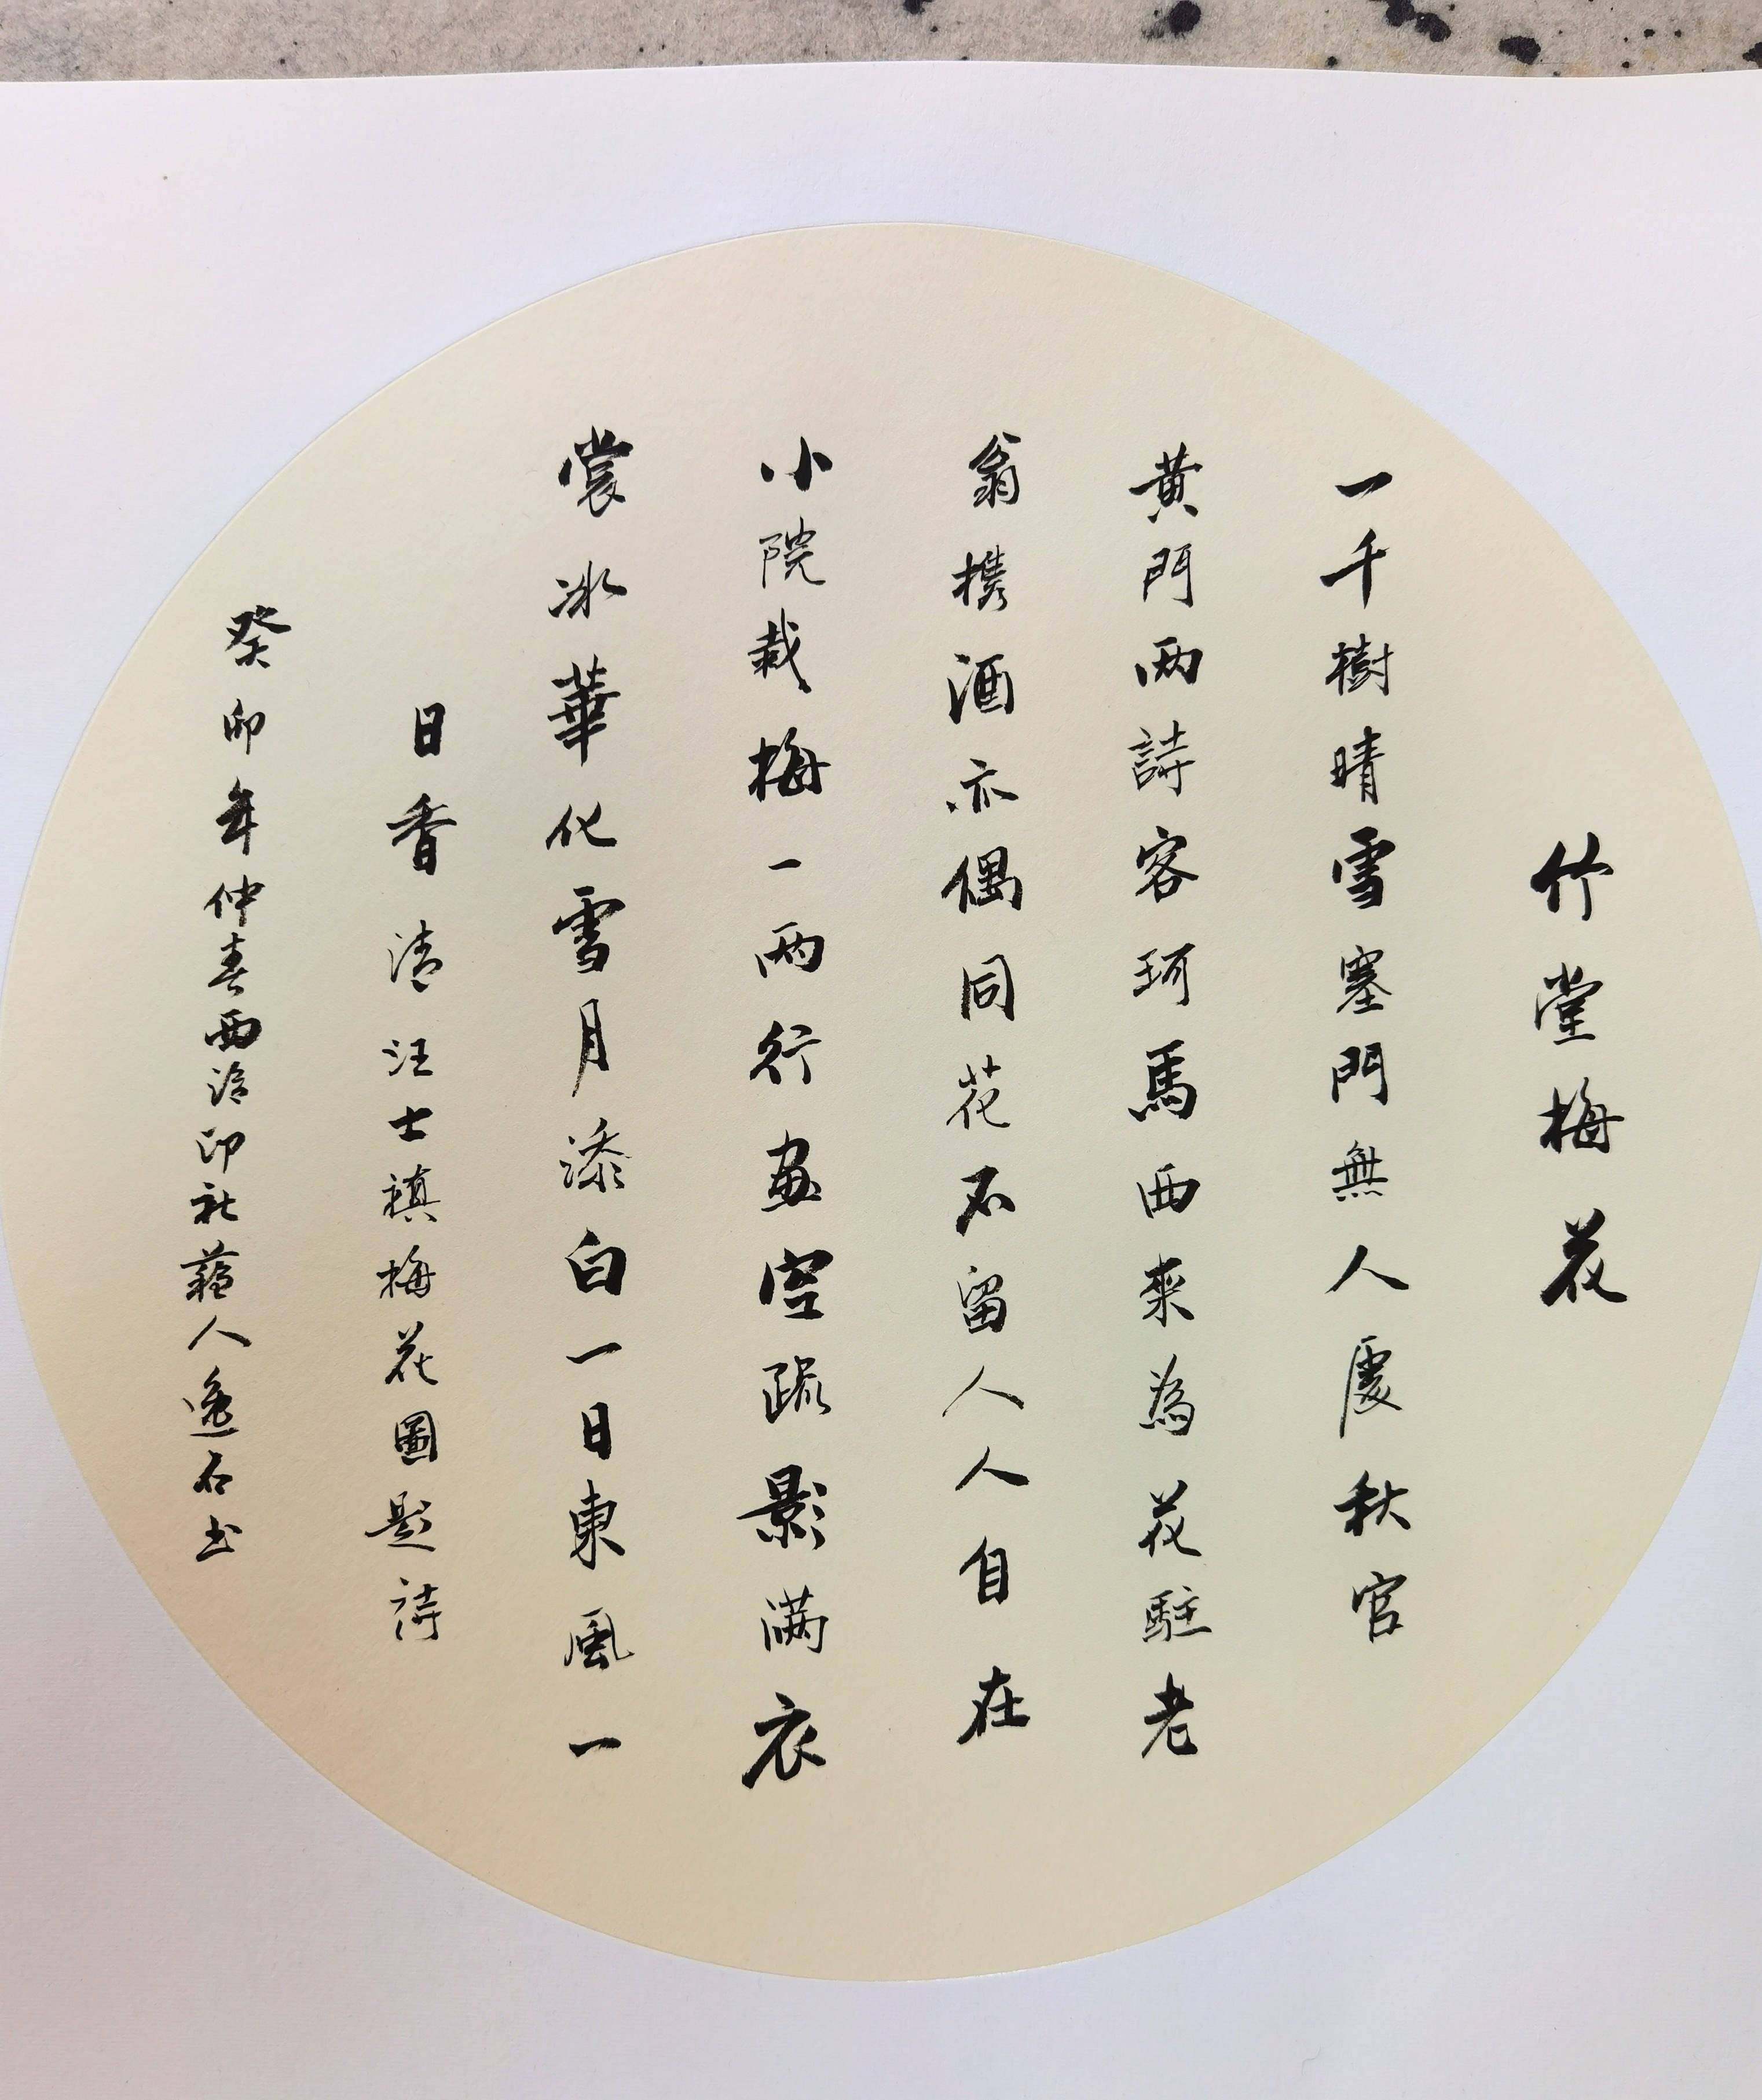 竹堂梅花
一千樹晴雪塞門無人處秋官
黃門两詩客珂馬西来為花駐老
翁携酒亦偶同花不留人人自在
小院栽梅一两行畫空疏影满衣
裳冰華化雪月添白一日東風一
日香 清 汪士禛梅花圖題詩
癸卯年仲春西泠印社藉人逸石书